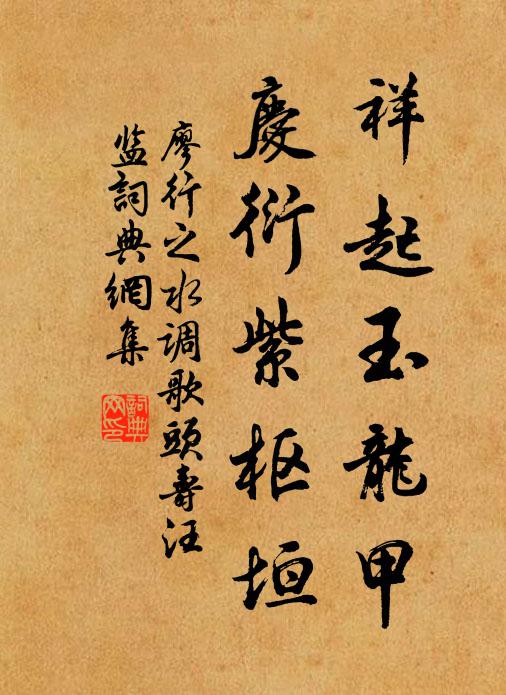 祥起玉龍甲
慶衍紫枢垣
廖行之水调歌頭壽汪
监詞典網集
詞典网印